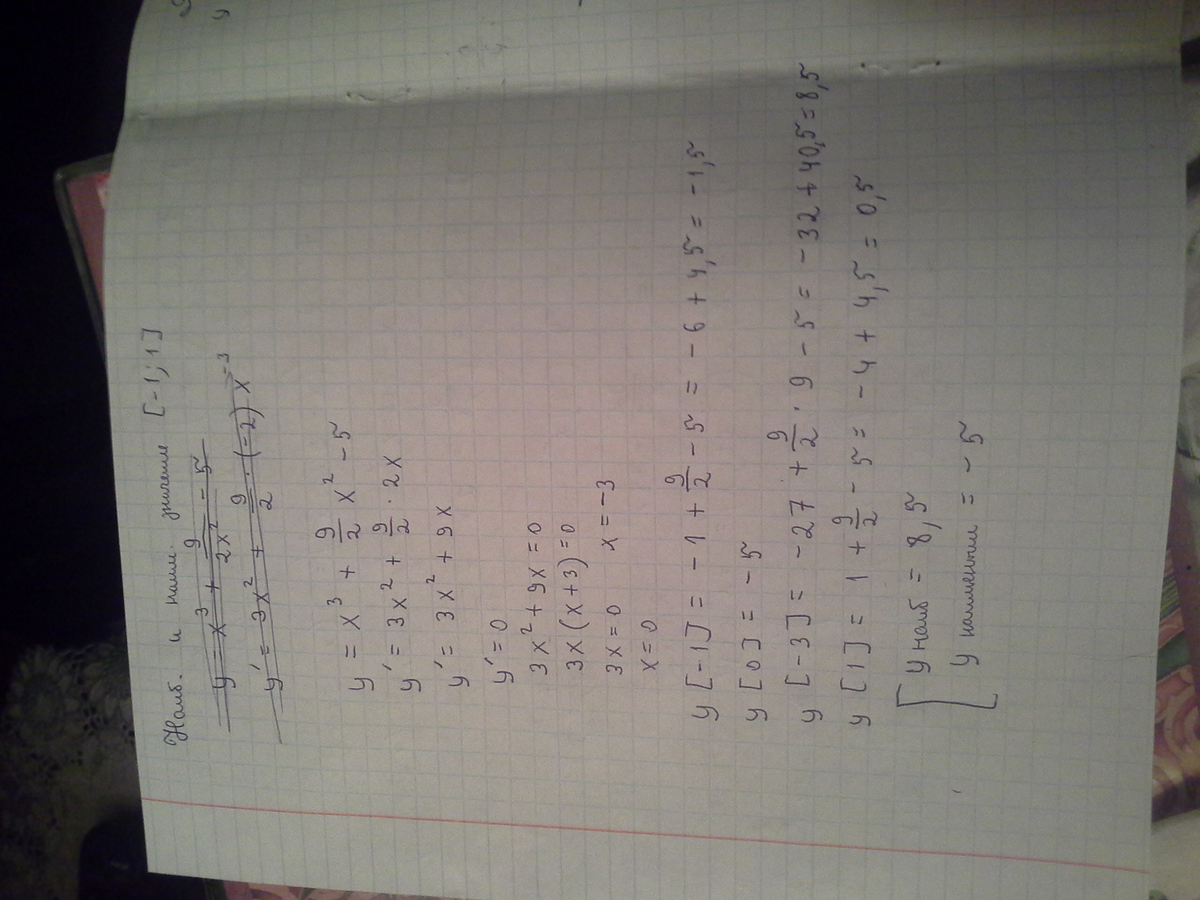 Наиб. и наим. значение [-1; 1]
y = x³ + 9/2x² - 5
y' = 3x² + 9/2 · (-2) x⁻³
y = x³ + 9/2 x² - 5
y' = 3x² + 9/2 · 2x
y' = 3x² + 9x
y' = 0
3x² + 9x = 0
3x (x+3) = 0
3x = 0 x = -3
x = 0
y [-1] = -1 + 9/2 - 5 = -6 + 4,5 = -1,5
y [0] = -5
y [-3] = -27 + 9/2 · 9 - 5 = -32 + 40,5 = 8,5
y [1] = 1 + 9/2 - 5 = -4 + 4,5 = 0,5
y наиб = 8,5
y наименьш = -5